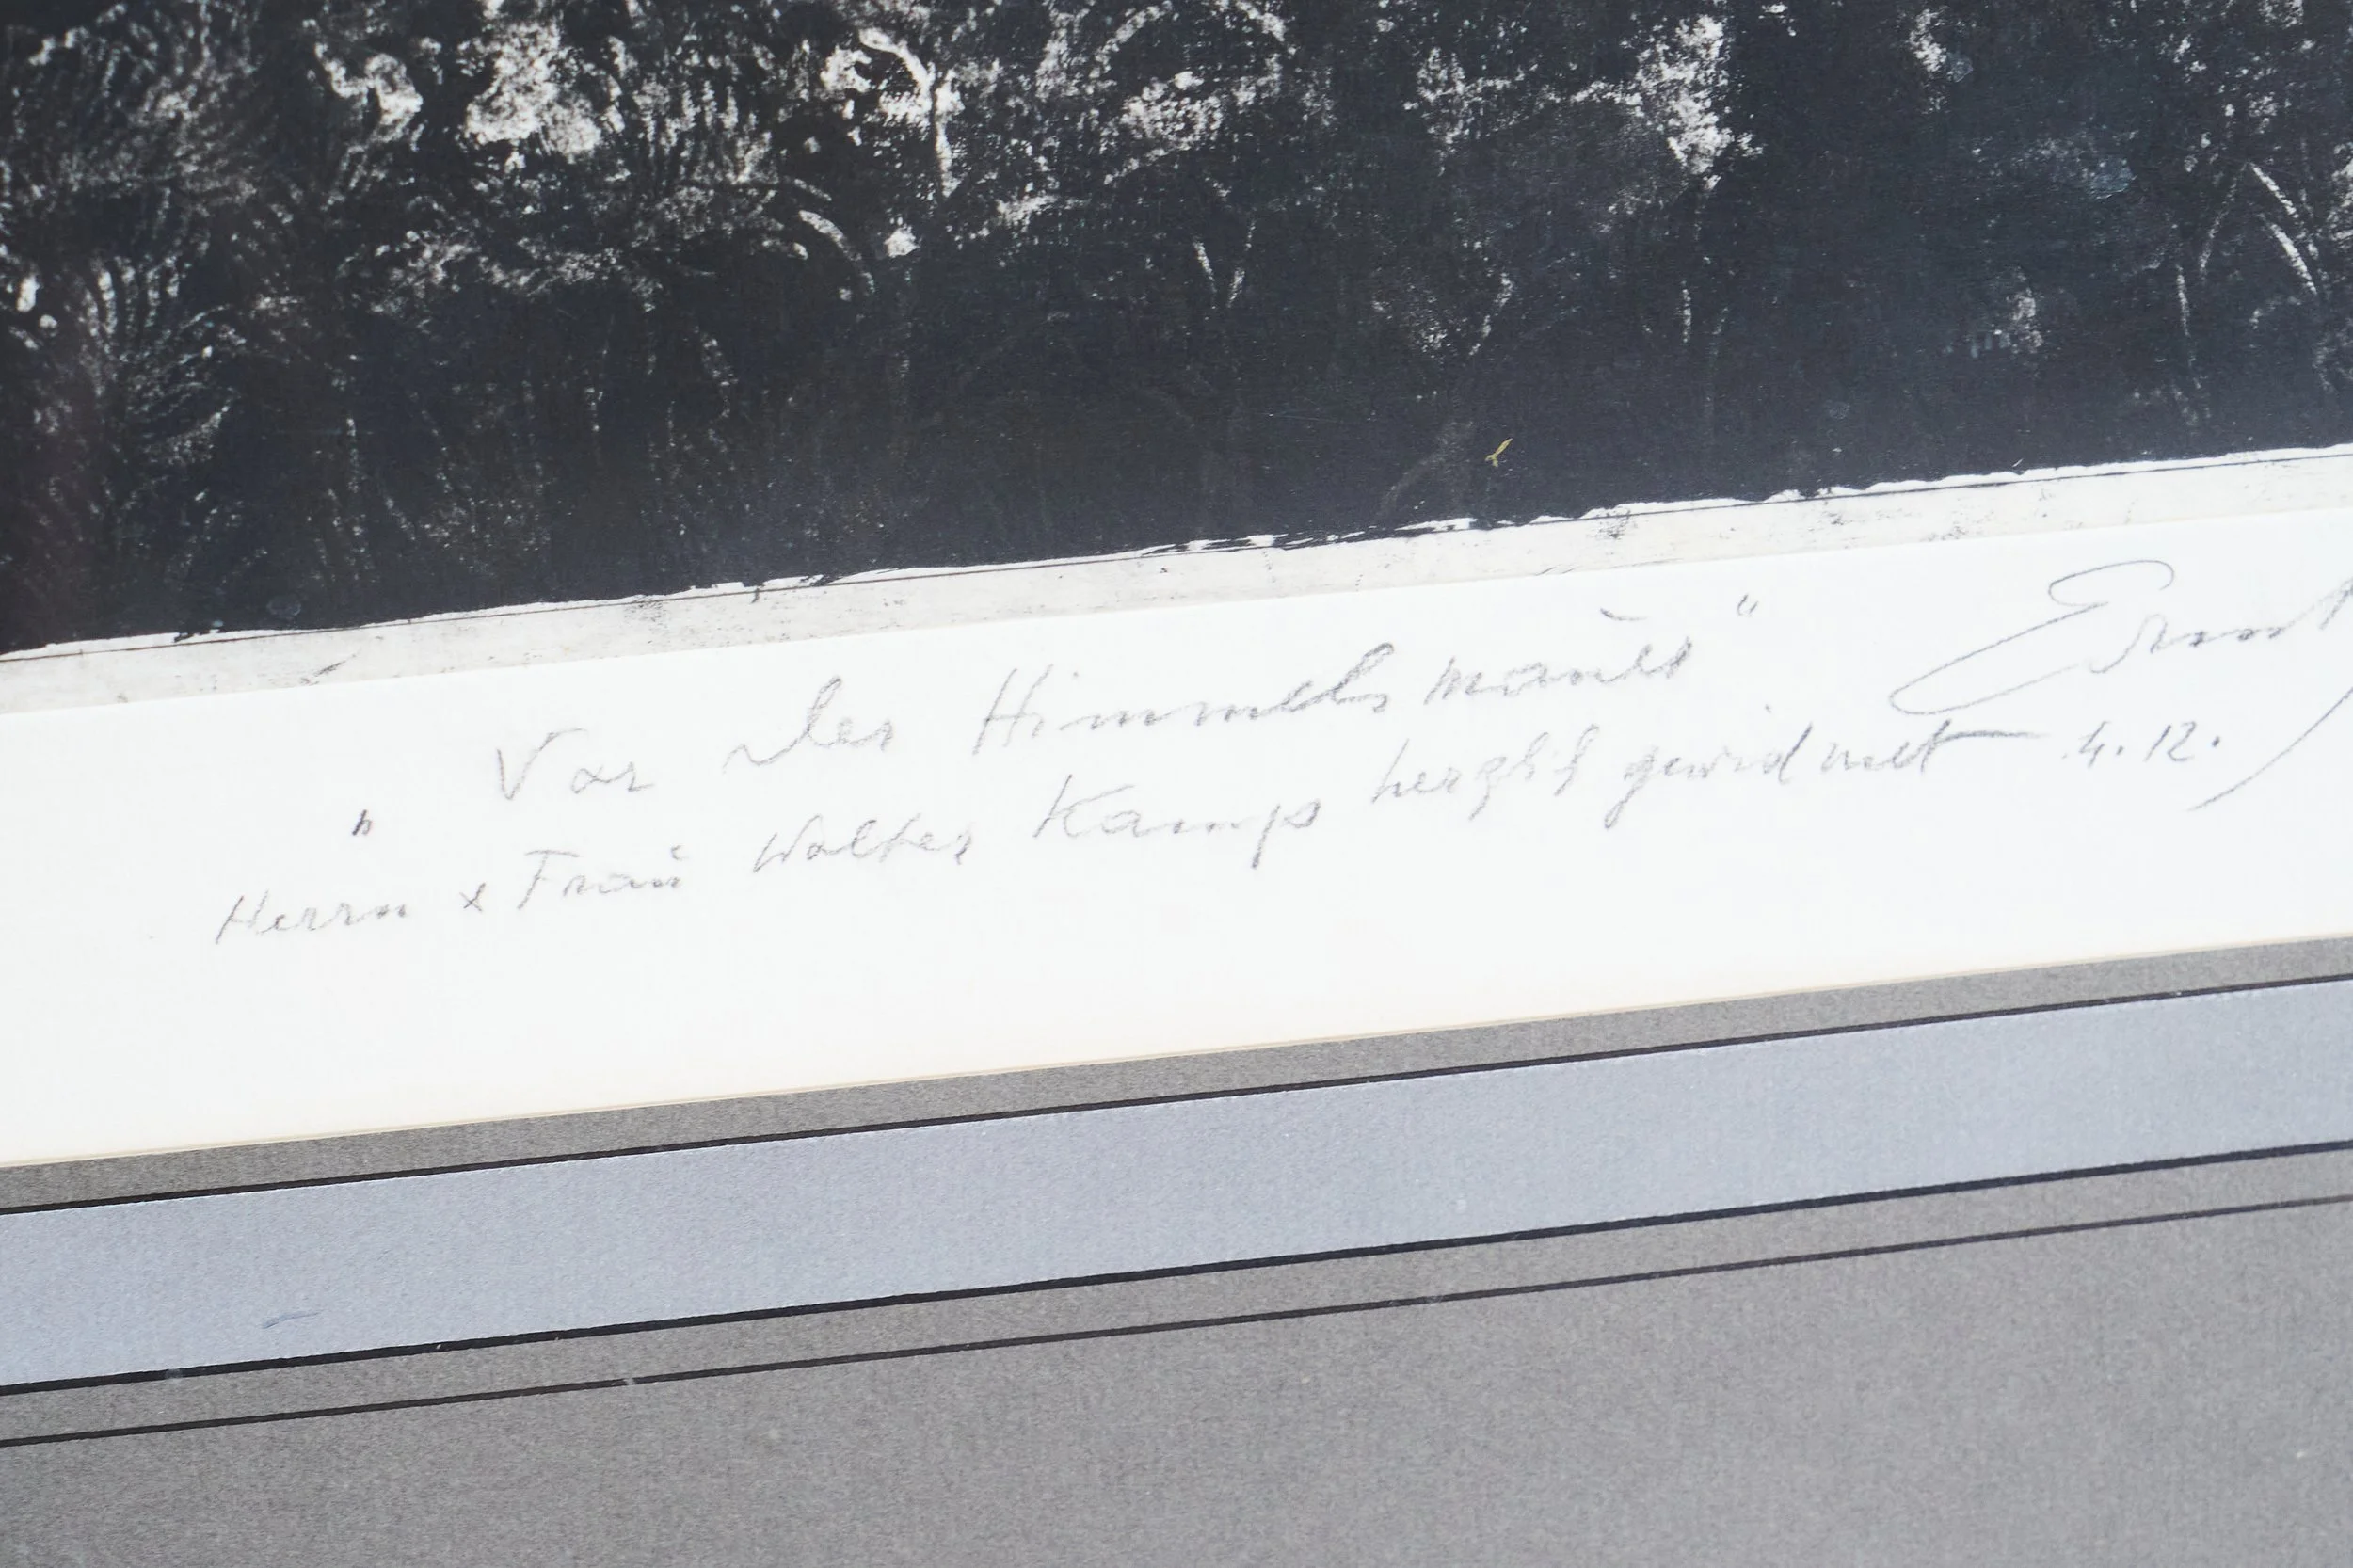 „Vor der Himmelsmauer“ Ernst
Herrn & Frau Walter Kamps herzlich gewidmet 4.12.